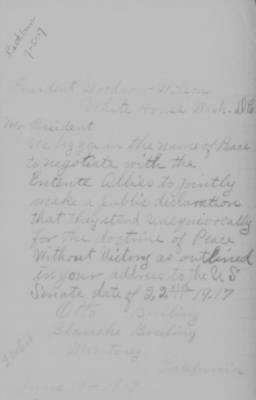 President Woodrow Wilson
White House Wash. D.C.
Mr President
We beg you in the name of Peace
to negotiate with the
Entente Allies to jointly
make a public declaration
that they stand unequivocally
for the doctrine of Peace
Without Victory as outlined
in your address to the U S
Senate date of 22nd 1917
Otto
Blanche
Monterey
California
June